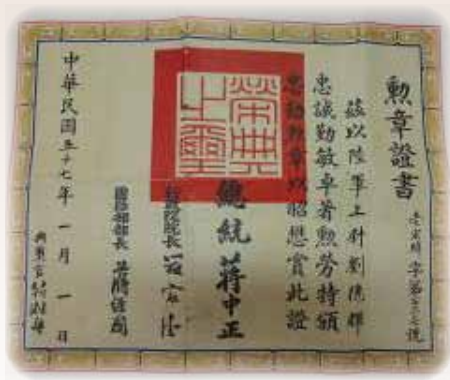 勲章證書
忠字第 號
茲以陸軍上尉劉德輝
忠誠勤敏卓著勲勞特頒
忠勤勲章以昭懋賞此證
榮典之璽
總統 蔣中正
行政院院長
國防部部長 蔣經國
中華民國五十七年 一月 一日
典璽官